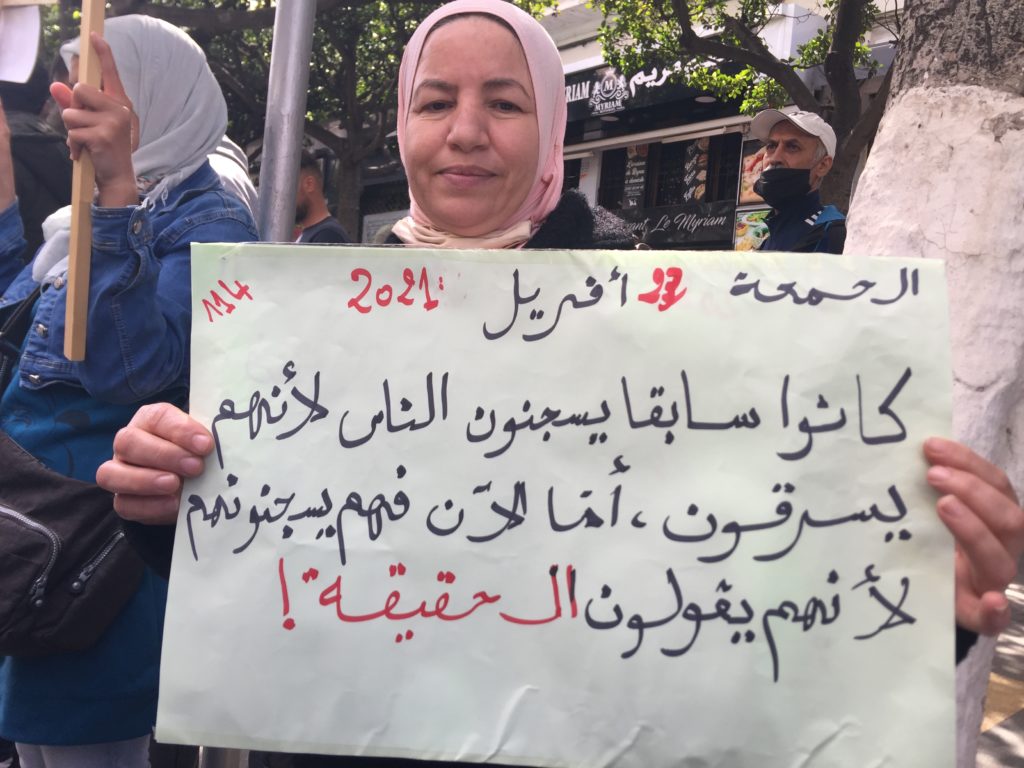 الجمعة 23 أفريل 2021:
114
كانوا سابقا يسجنون الناس لأنهم
يسرقون، أمّا الآن فهم يسجنونهم
لأنهم يقولون الحقيقة!
MYRIAM
Le Myriam